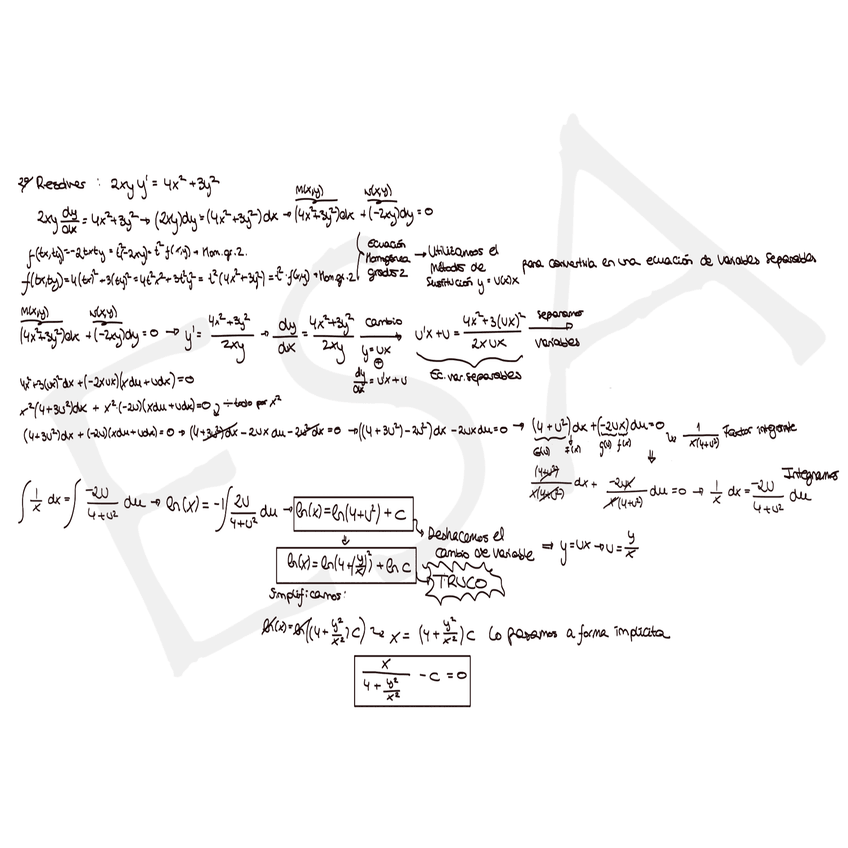 2º Resolver: 2xy y' = 4x² + 3y²
M(x,y) N(x,y)
2xy dy/dx = 4x²+3y² → (2xy)dy = (4x²+3y²)dx → (4x²+3y²)dx + (-2xy)dy = 0
f(tx,ty) = -2txty = t²(-2xy) = t² f(x,y) → Hom. gr. 2.
f(tx,ty) = 4(tx)² + 3(ty)² = 4t²x² + 3t²y² = t²(4x²+3y²) = t²·f(x,y) → Hom. gr. 2.
Ecuación Homogénea grado 2 → Utilizamos el Método de Sustitución y = U(x)x para convertirla en una ecuación de variables separables
M(x,y) N(x,y)
(4x²+3y²)dx + (-2xy)dy = 0 → y' = 4x²+3y² / 2xy → dy/dx = 4x²+3y² / 2xy cambio y=ux dy/dx = u'x+u → u'x+u = 4x²+3(ux)² / 2xux separamos variables
Ec. var. separables
4x²+3(ux)²dx + (-2xux)(xdu+udx) = 0
x²(4+3u²)dx + x²·(-2u)(xdu+udx) = 0 ÷ todo por x²
(4+3u²)dx + (-2u)(xdu+udx) = 0 → (4+3u²)dx - 2ux du - 2u²dx = 0 → ((4+3u²)-2u²)dx - 2uxdu = 0 → (4+u²)dx + (-2ux)du = 0 → 1/x(4+u²) Factor integrante
G(u) F(x) g(u) f(x)
(4+u²)/x(4+u²) dx + -2ux/x(4+u²) du = 0 → 1/x dx = -2u/4+u² du Integramos
∫ 1/x dx = ∫ -2u/4+u² du → ln(x) = -1∫ 2u/4+u² du → ln(x) = ln(4+u²) + C
Deshacemos el cambio de variable ⇒ y = ux → u = y/x
ln(x) = ln(4+(y/x)²) + ln C → TRUCO
Simplificamos:
ln(x) = ln((4+y²/x²)C) → x = (4+y²/x²)C Lo pasamos a forma implícita
x / 4+y²/x² - C = 0
ESA